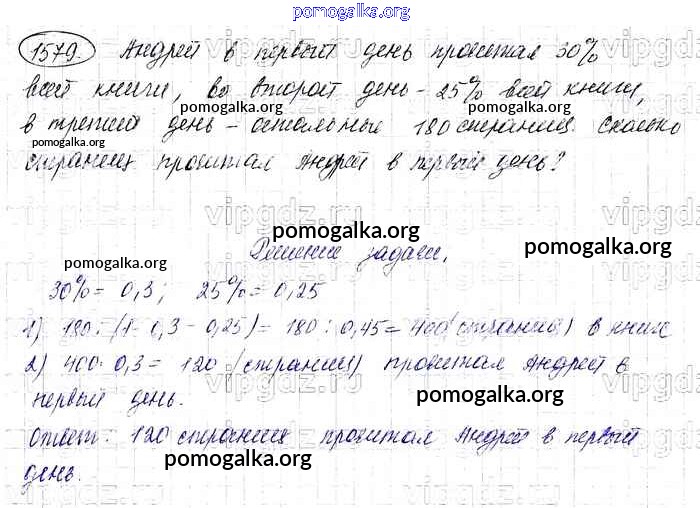 pomogalka.org
1579. Андрей в первый день прочитал 30%
всей книги, во второй день - 25% всей книги,
pomogalka.org pomogalka.org
в третий день - остальные 180 страниц. Сколько
pomogalka.org
страниц прочитал Андрей в первый день?
pomogalka.org
vipgdz.ru
Решение задачи.
pomogalka.org
pomogalka.org
30% = 0,3; 25% = 0,25
1) 180 : (1 - 0,3 - 0,25) = 180 : 0,45 = 400 (страниц) в книге
2) 400 · 0,3 = 120 (страниц) прочитал Андрей в
первый день.
pomogalka.org
Ответ: 120 страниц прочитал Андрей в первый
день.
pomogalka.org
vipgdz.ru